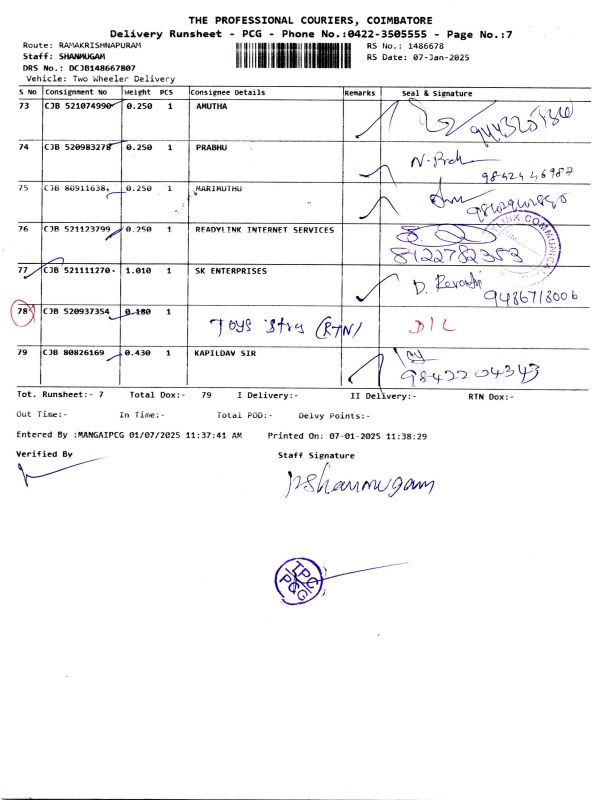 THE PROFESSIONAL COURIERS, COIMBATORE
Delivery Runsheet - PCG - Phone No.:0422-3505555 - Page No.:7
Route: RAMAKRISHNAPURAM RS No.: 1486678
Staff: SHANMUGAM RS Date: 07-Jan-2025
DRS No.: DCJB148667807
Vehicle: Two Wheeler Delivery
S No Consignment No Weight PCS Consignee Details Remarks Seal & Signature
73 CJB 521074990 0.250 1 AMUTHA
74 CJB 520983278 0.250 1 PRABHU
N-Prabh
98424 46987
75 CJB 80911638 0.250 1 MARIMUTHU
76 CJB 521123799 0.250 1 READYLINK INTERNET SERVICES
8122782353
77 CJB 521111270 1.010 1 SK ENTERPRISES
D. Revathi
9486718006
78 CJB 520937354 0.180 1
Toys (RTN) D/L
79 CJB 80826169 0.430 1 KAPILDAV SIR
9842204343
Tot. Runsheet:- 7 Total Dox:- 79 I Delivery:- II Delivery:- RTN Dox:-
Out Time:- In Time:- Total POD:- Delvy Points:-
Entered By :MANGAIPCG 01/07/2025 11:37:41 AM Printed On: 07-01-2025 11:38:29
Verified By Staff Signature
PShanmugam
TPC
PCG